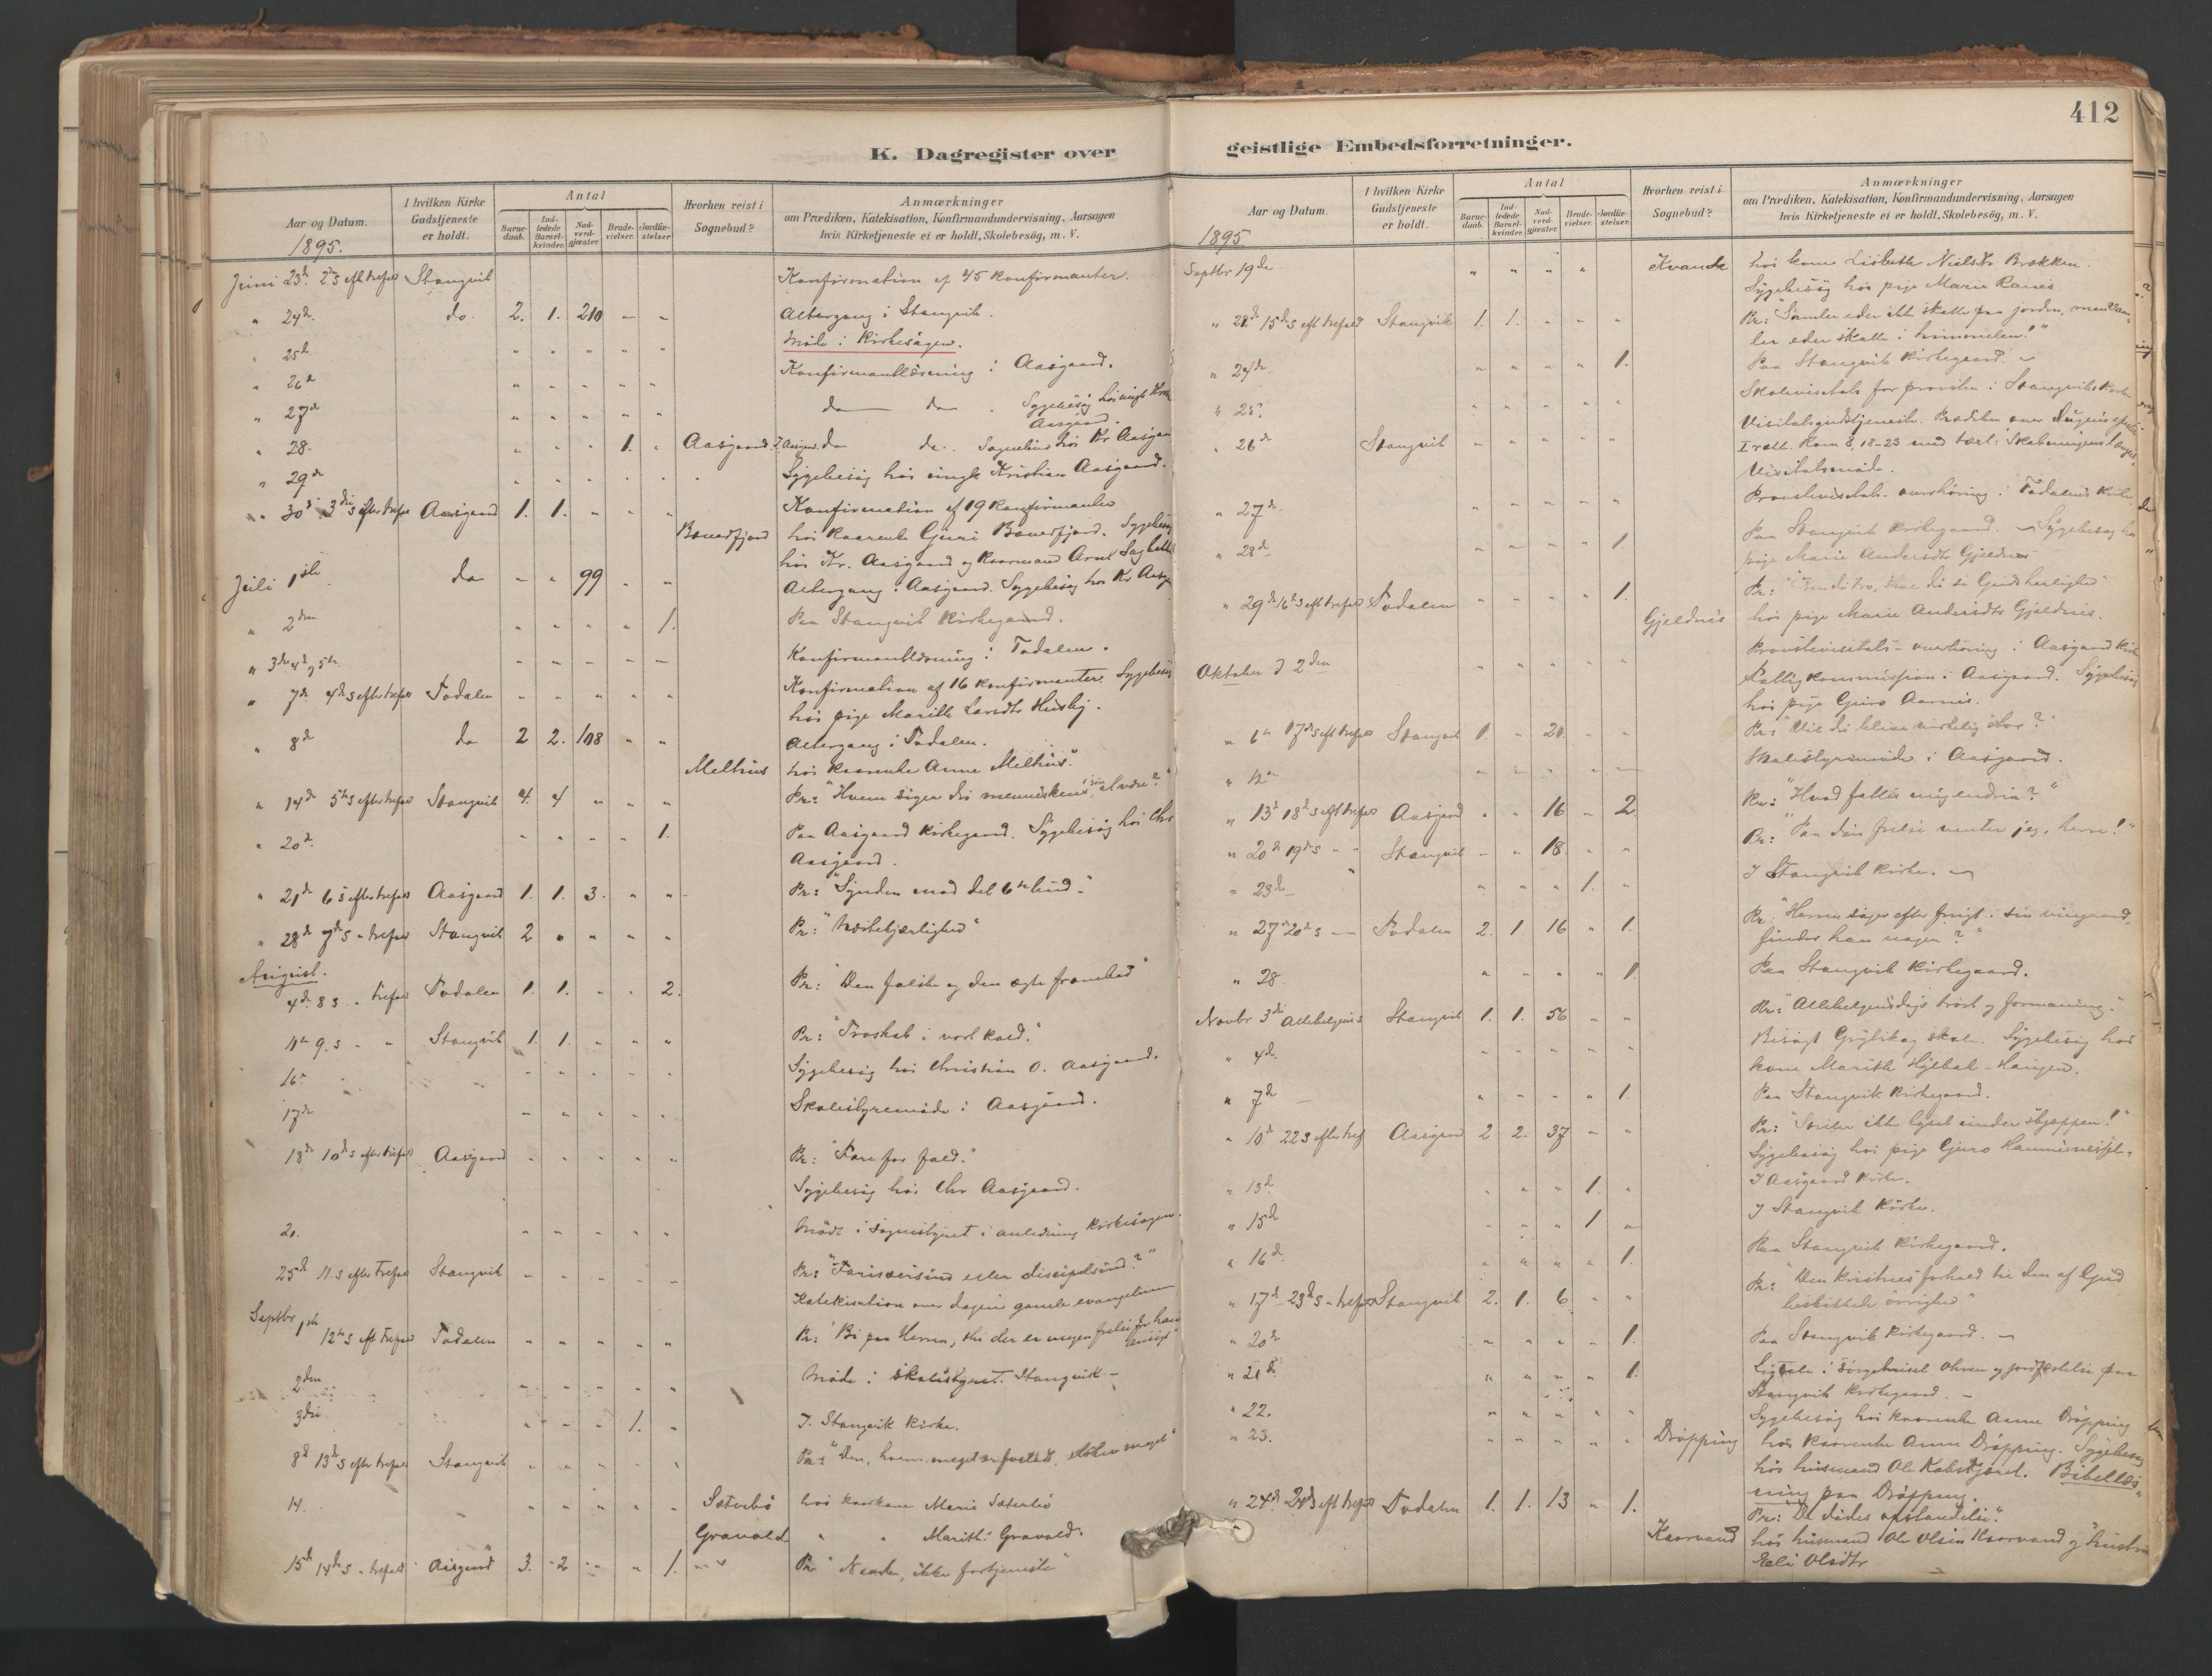 412
K. Dagregister over
geistlige Embedsforretninger.
Aar og Datum.
1895.
I hvilken Kirke Gudstjeneste er holdt.
Antal
Barne-daab.
Ind-ledede Barsel-kvinder.
Nad-verd-gjæster.
Brude-vielser.
Jordfæ-stelser.
Hvorhen reist i Sognebud?
Anmærkninger
om Prædiken, Katekisation, Konfirmandundervisning, Aarsagen
hvis Kirketjeneste ei er holdt, Skolebesög, m. V.
Juni 23de 2. s eft trefol Stangvik Konfirmation af 45 konfirmanter.
" 24de do. 2. 1. 210 - - Altergang i Stangvik.
" 25de " " " " " Möde i kirkesagen.
" 26de " " " " " Konfirmantlæsning i Aasgaard.
" 27de " " " " " do do. Sygebesög hos
Aasgaard.
" 28. " " " 1. " Aasgaard. do do. Sognebud hos Kr Aasgaar
" 29de " " " " " Sygebesög hos ungk Kristian Aasgaard.
" 30te 3die s efter trefol Aasgaard 1. 1. " " " Konfirmation af 19 konfirmanter
Bæverfjord hos kaarenke Guri Bæverfjord. Sygebesög
hos Kr. Aasgaard og kaarmand Arnt
Juli 1ste do - " 99 - - Altergang i Aasgaard. Sygebesög hos Kr Aasg
" 2den " " " " 1. Paa Stangvik kirkegaard.
" 3de 4de 5te - - - - - Konfirmantlæsning i Todalen.
" 7de 4de s efter trefol Todalen " " " " " Konfirmation af 16 konfirmanter. Sygebesög
hos pige Marith Larsdtr Husby.
" 8de do 2 2. 108 - " Altergang i Todalen.
Melhus hos kaarenke Anne Melhus.
" 14de 5te s efter trefol Stangvik 4. 4 " " " Pr: "Hvem siger du menneskens sön at være?"
" 20de " " " " 1. Paa Aasgaard kirkegaard. Sygebesög hos Chr
Aasgaard.
" 21de 6 s efter trefol Aasgaard 1. 1. 3. " " Pr: "Synden mod det 6te bud."
" 28de 7de s " trefol Stangvik 2 " " " " Pr: "Næstekjærlighed"
August.
4de 8 s " trefol Todalen 1. 1. " " 2. Pr: "Den falske og den ægte fromhed"
11te 9. s " " Stangvik 1. 1. " " " Pr: "Troskab i vort kald."
16de " " " " " Sygebesög hos Christian O. Aasgaard.
17de " " " " " Skolestyremöde i Aasgaard.
18de 10de s efter trefol Aasgaard " " " " " Pr: "Fare for fald."
Sygebesög hos Chr Aasgaard.
21. " " " " " Möde i sognestyret i anledning kirkesagen.
25de 11. s efter trefol Stangvik " " " " " Pr: "Farisæersind eller discipelsind?"
Katekisation over dagens gamle evangelium
Septbr 1ste 12te s eft trefol Todalen " " " " " Pr: "Bi paa Herren, thi der er ingen frelse for hans
ansigt"
2den " " " " " Möde i skolestyret. Stangvik -
3die " " " 1. " I. Stangvik kirke.
8de 13de s efter trefol Stangvik " " " " " Pr: "Den, hvem meget er forladt, elsker meget"
14. " " " " " Sæterbö hos kaarkone Maris Sæterbö
Gravald " " Marith Gravald.
15de 14de s " trefol Aasgaard 3. 2 " " 1. Pr "Naade, ikke fortjeneste"
Aar og Datum.
1895
I hvilken Kirke Gudstjeneste er holdt.
Antal
Barne-daab.
Ind-ledede Barsel-kvinder.
Nad-verd-gjæster.
Brude-vielser.
Jordfæ-stelser.
Hvorhen reist i Sognebud?
Anmærkninger
om Prædiken, Katekisation, Konfirmandundervisning, Aarsagen
hvis Kirketjeneste ei er holdt, Skolebesög, m. V.
Septbr 19de " " " " Kvande hos kone Lisbeth Nielsdtr Brækken.
Sygebesög hos pige Marie Ranes
" 22de 15de s eft trefold Stangvik 1. 1. " " " Pr: "Samler eder ikke skatte paa jorden, men sam-
ler eder skatte i himmelen!"
" 24de " " " " 1. Paa Stangvik kirkegaard.
" 25. " " " " " Skolevisitats for provsten i Stangviks kirke
" 26de Stangvik " " " " " Visitatsgudstjeneste. Prædiken over dagens
Rom 8, 18-23 med text: Skabningens længsel.
Visitatsmöde.
" 27de " " " " " Provstevisitats. overhöring i Todalens kirke
" 28de " " " " 1. Paa Stangvik kirkegaard. Sygebesög hos
pige Marie Andersdtr Gjeldnes
" 29de 16de s eft trefol Todalen " " " " 1. Pr: "Kan du tro, skal du se Guds herlighed"
Gjeldnes hos pige Marie Andersdtr Gjeldnes.
Oktober d 2den " " " " " Provstevisitats - overhöring i Aasgaard kirke
Fattigkommission i Aasgaard. Sygebesög
hos pige Guro Aarnes.
" 6te 17de s eft trefol Stangvik 1. " 20 " " Pr: "Vil du blive virkelig stor?"
" 12te " " " " " Skolestyremöde i Aasgaard.
" 13de 18de s eft trefol Aasgaard " " 16 - 2. Pr: "Hvad fattes mig endnu?"
" 20de 19de s " " Stangvik - " 18 " " Pr: "Paa din frelse venter jeg, herre!"
" 23de " " " 1. " I Stangvik kirke.
" 27de 20de s Todalen 2. 1. 16 " 1. Pr: "Herren söger efter frugt i sin vingaard,
finder han nogen?"
" 28 " " " " 1. Paa Stangvik kirkegaard.
Novbr 3de Allehelgens Stangvik 1. 1. 56 - " Pr: "Allehelgensdags tröst og formaning."
" 4de " " " " " Besögt skole. Sygebesög hos
kone Marith
" 7de " " " " 1. Paa Stangvik kirkegaard.
" 10de 22 s efter tref Aasgaard 2 2. 37 - " Pr: "Sætter ikke lyset under skjæppen!"
Sygebesög hos pige Guro
" 13de " " " 1. " I Aasgaard kirke.
" 15de " " " 1 " I Stangvik kirke.
" 16de " " " " 1. Paa Stangvik kirkegaard.
" 17de 23de s " trefol Stangvik 2. 1. 6 " " Pr: "Den kristnes forhold til den af Gud
beskikkede övrighed"
" 20de " " " " 1. Paa Stangvik kirkegaard.
" 21de " " " " 1. Ligtale i sörgehuset og jordfæstelse paa
Stangvik kirkegaard.
" 22. " " " " " Sygebesög hos kaarenke Anne Dröpping
" 23. " " " " " Dröpping hos kaarenke Anne Dröpping. Sygebesög
hos husmand Ole Bibellæs-
ning paa Dröpping.
" 24de 24de s eft trefol Todalen 1. 1. 13 " 1. Pr: "De dödes opstandelse."
Kaarvand hos husmand Ole Olsen Kaarvand og hustru
Eli Olsdtr